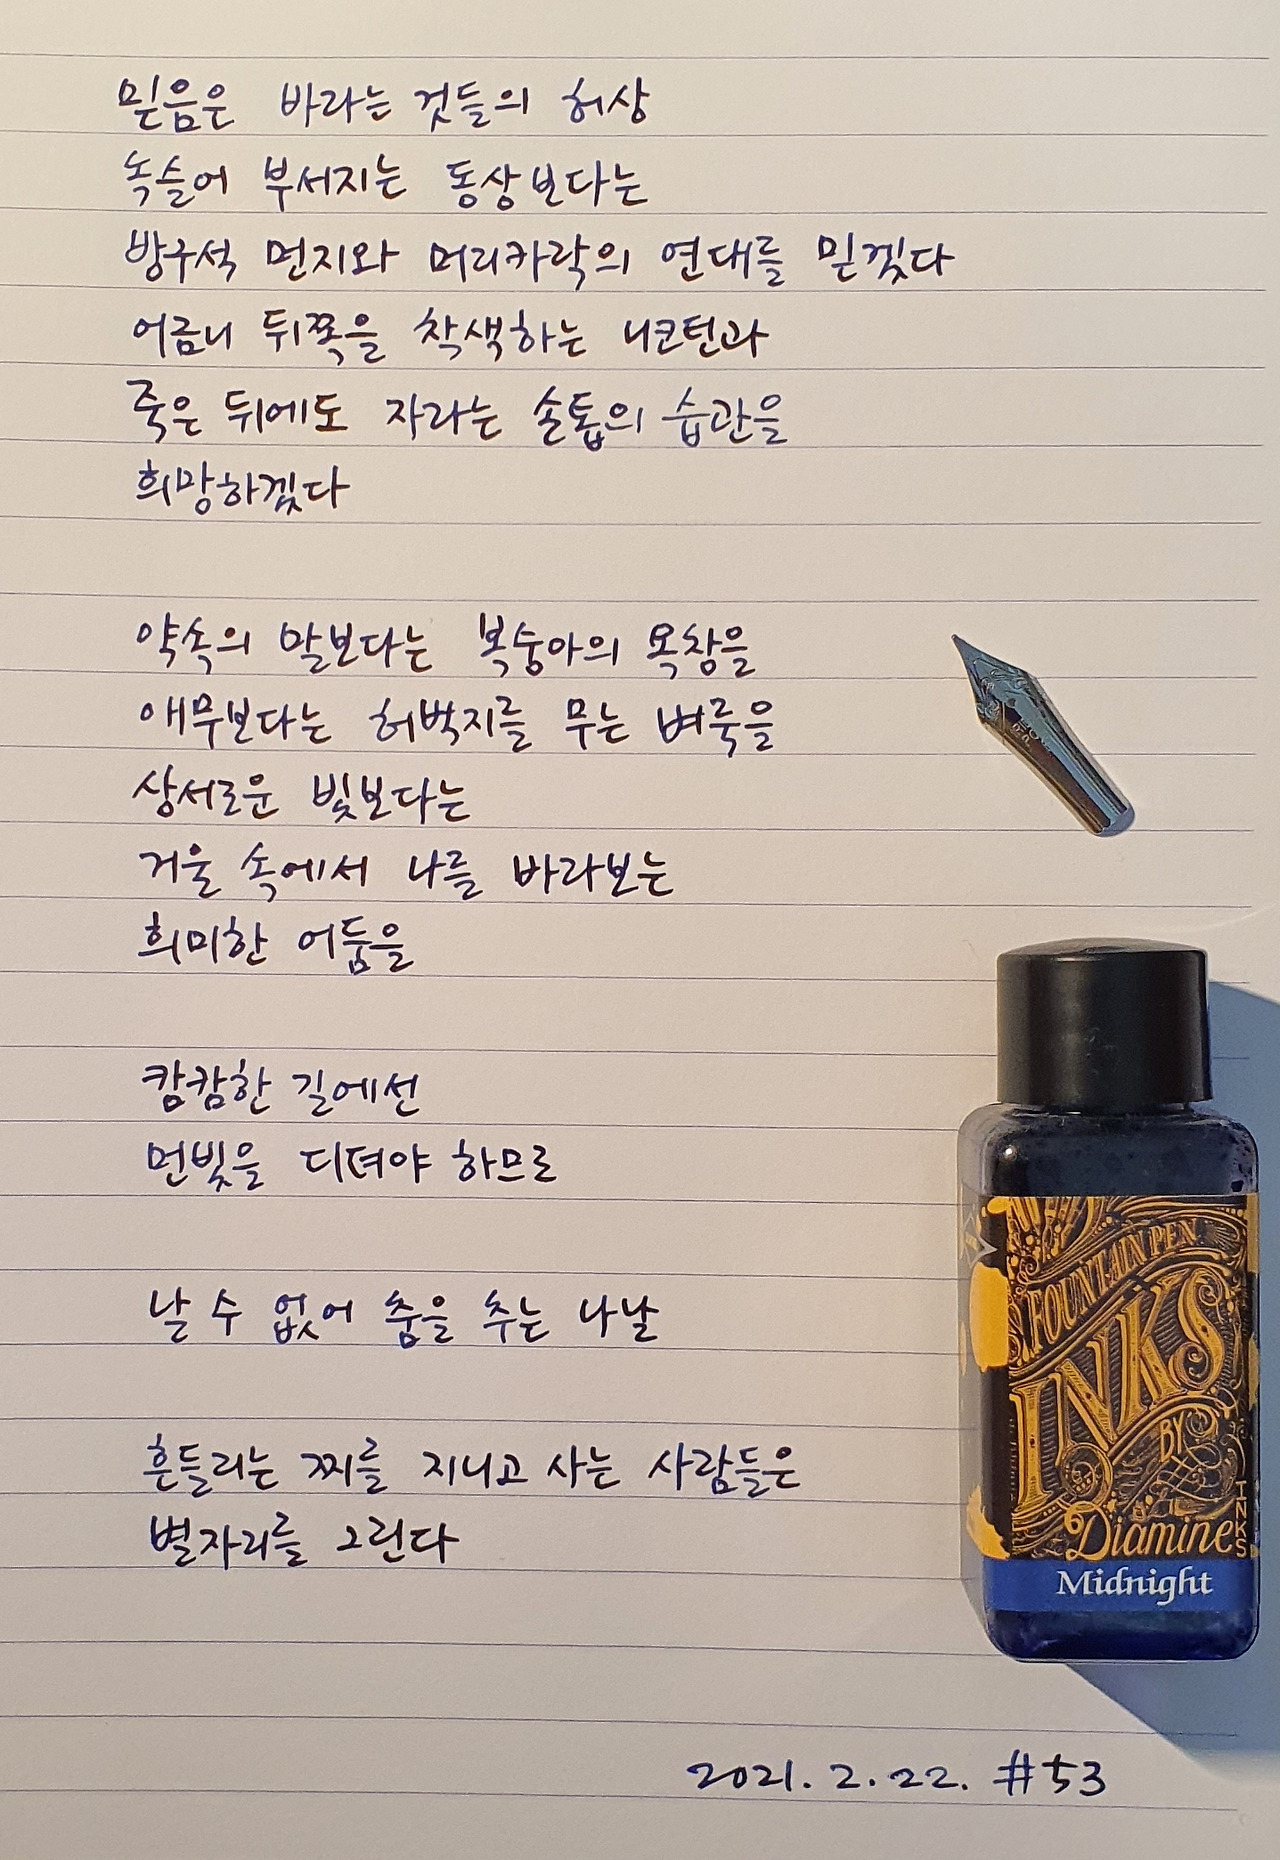 믿음은 바라는 것들의 허상
녹슬어 부서지는 동상보다는
방구석 먼지와 머리카락의 연대를 믿겠다
어금니 뒤쪽을 착색하는 니코틴과
죽은 뒤에도 자라는 손톱의 습관을
희망하겠다
약속의 말보다는 복숭아의 욕창을
애무보다는 허벅지를 무는 벼룩을
상서로운 빛보다는
거울 속에서 나를 바라보는
희미한 어둠을
캄캄한 길에선
먼빛을 디뎌야 하므로
날 수 없어 춤을 추는 나날
흔들리는 찌를 지니고 사는 사람들은
별자리를 그린다
FOUNTAIN PEN
INKS
BY
Diamine
INKS
Midnight
2021. 2. 22. #53